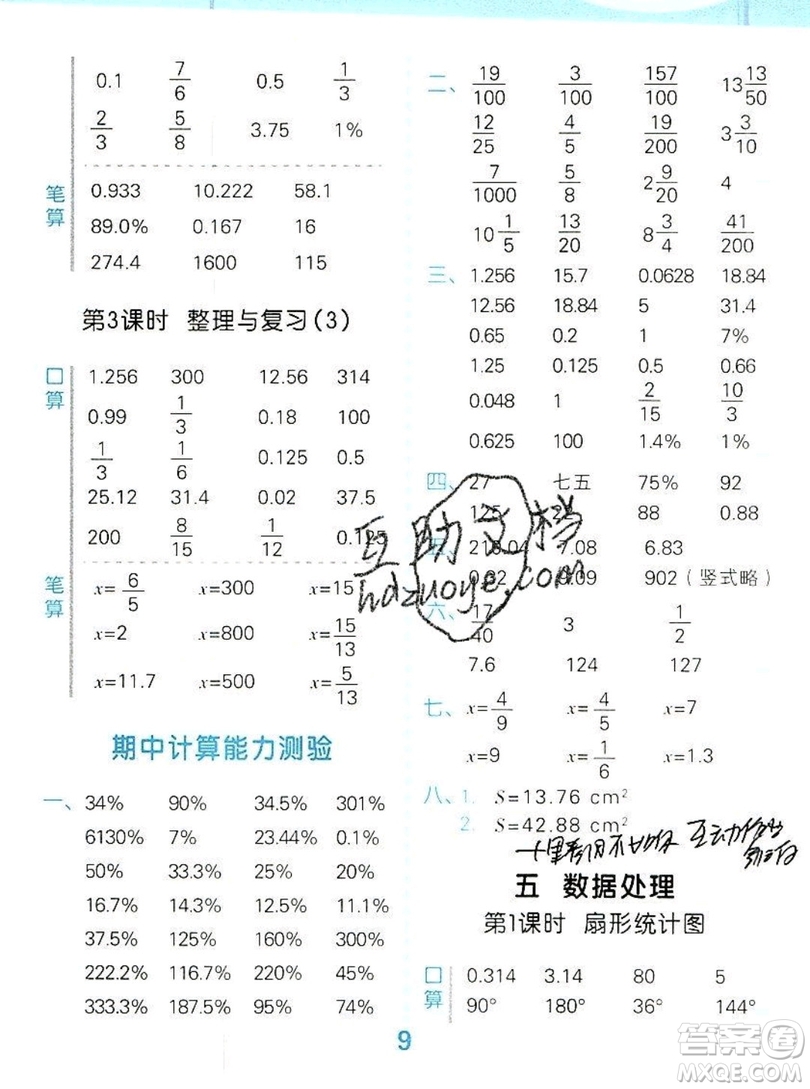 0.1 7/6 0.5 1/3
2/3 5/8 3.75 1%
笔算
0.933 10.222 58.1
89.0% 0.167 16
274.4 1600 115
第3课时 整理与复习(3)
口算
1.256 300 12.56 314
0.99 1/3 0.18 100
1/3 1/6 0.125 0.5
25.12 31.4 0.02 37.5
200 8/15 1/12 0.125
笔算
x=6/5 x=300 x=15
x=2 x=800 x=15/13
x=11.7 x=500 x=5/13
期中计算能力测验
一、 34% 90% 34.5% 301%
6130% 7% 23.44% 0.1%
50% 33.3% 25% 20%
16.7% 14.3% 12.5% 11.1%
37.5% 125% 160% 300%
222.2% 116.7% 220% 45%
333.3% 187.5% 95% 74%
二、 19/100 3/100 157/100 13 13/50
12/25 4/5 19/200 3 3/10
7/1000 5/8 2 9/20 4
10 1/5 13/20 8 3/4 41/200
三、 1.256 15.7 0.0628 18.84
12.56 18.84 5 31.4
0.65 0.2 1 7%
1.25 0.125 0.5 0.66
0.048 1 2/15 10/3
0.625 100 1.4% 1%
四、 27 七五 75% 92
125 88 0.88
7.08 6.83
902(竖式略)
六、 17/40 3 1/2
7.6 124 127
七、 x=4/9 x=4/5 x=7
x=9 x=1/6 x=1.3
八、 1. S=13.76 cm²
2. S=42.88 cm²
互助文档
hdzuoye.com
五 数据处理
第1课时 扇形统计图
口算
0.314 3.14 80 5
90° 180° 36° 144°
9
答案圈
MXQE.COM